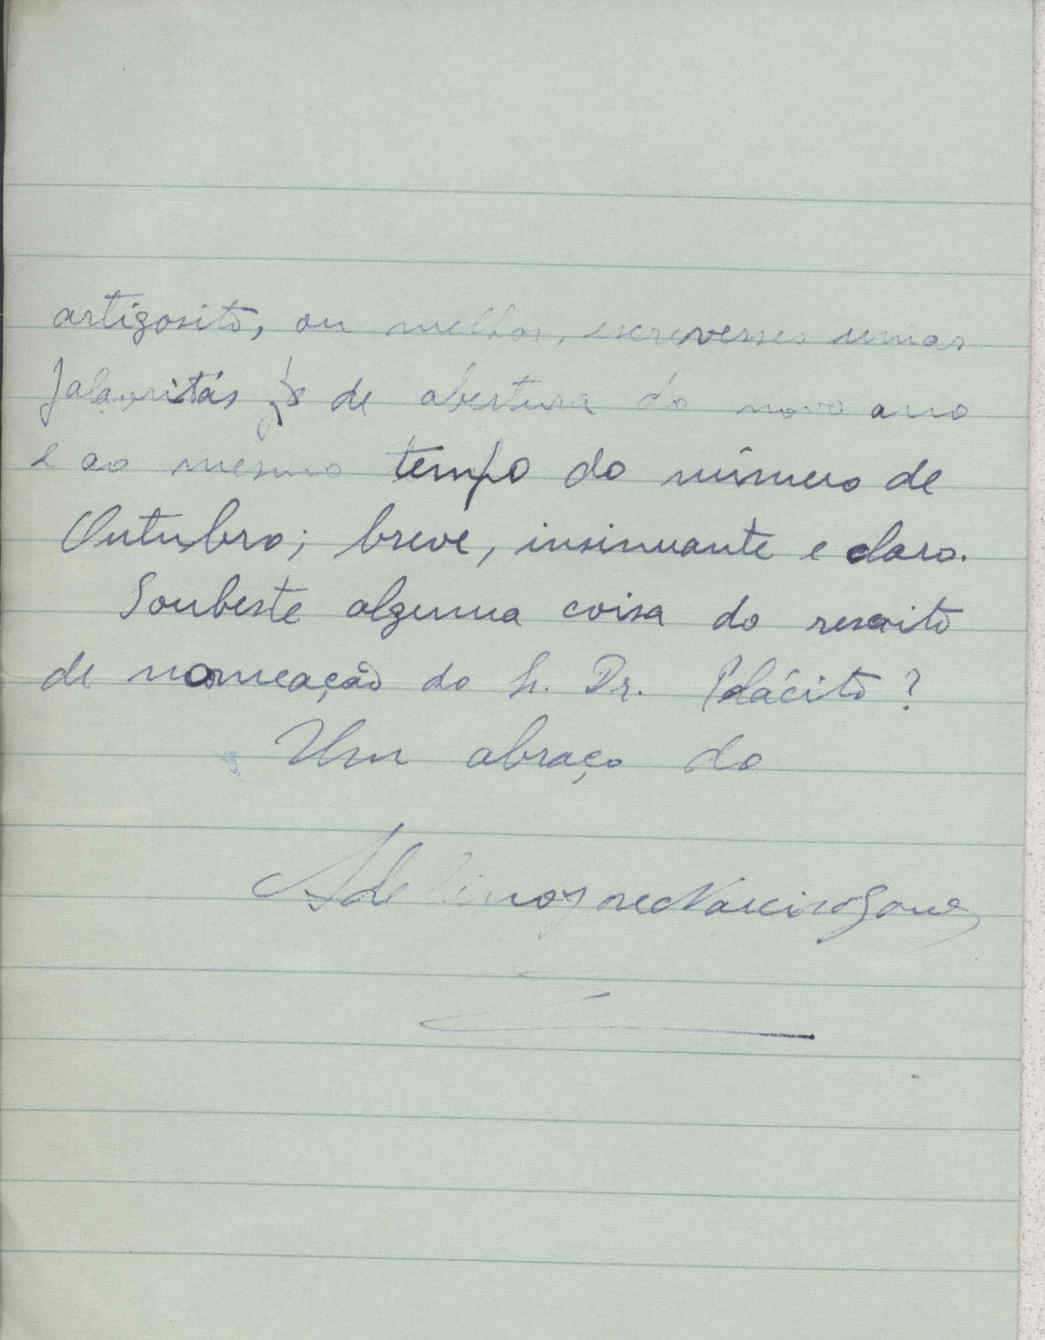 artigosito, ou melhor, escrevesses umas
palavritas de abertura do novo ano
e ao mesmo tempo do número de
Outubro; breve, insinuante e claro.
Soubeste alguma coisa do rescrito
de nomeação do Sr. Dr. Plácito?
Um abraço do
Adelino José Narciso